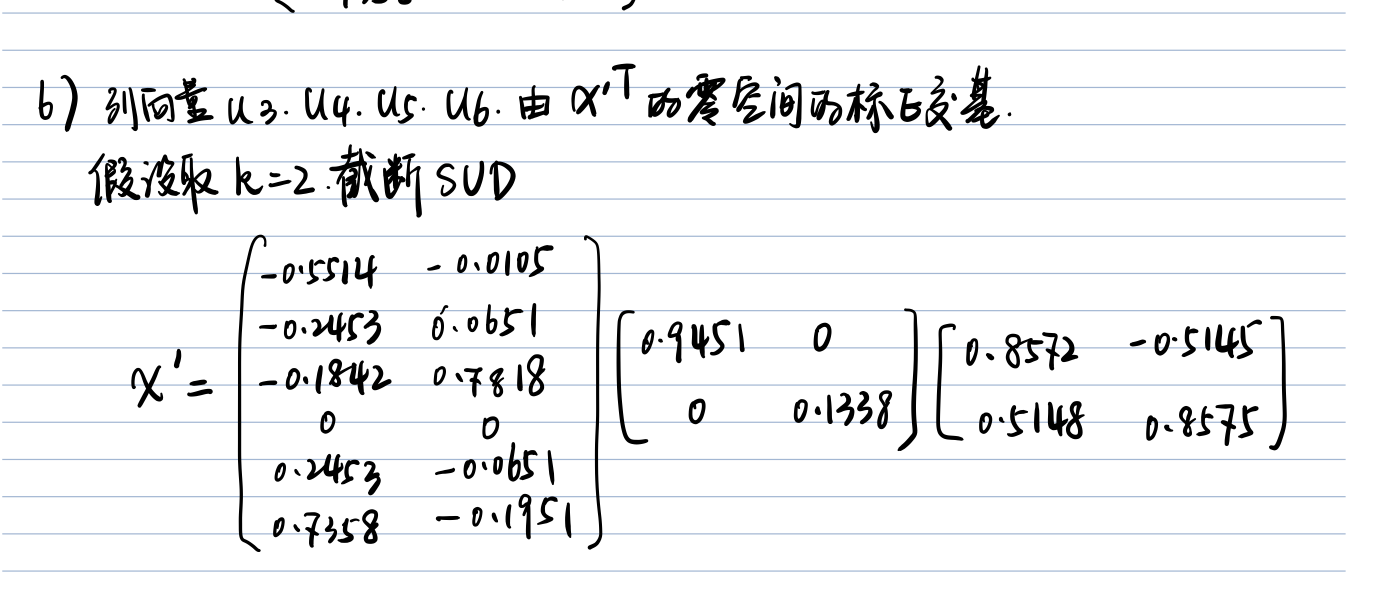 b) 列向量 u3. u4. u5. u6. 由 X'ᵀ 的零空间的标正交基.
假设取 k=2. 截断 SVD
X' = [-0.5514 -0.0105; -0.2453 0.0651; -0.1842 0.7818; 0 0; 0.2453 -0.0651; 0.7358 -0.1951] [0.9451 0; 0 0.1338] [0.8572 -0.5145; 0.5148 0.8575]